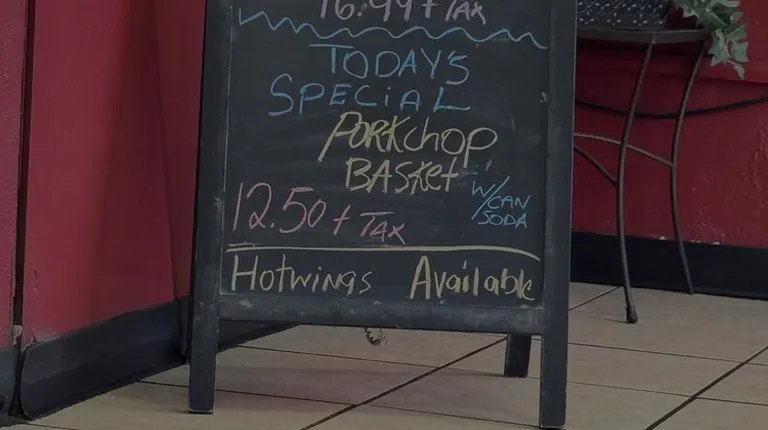 16.99 + TAX
TODAY'S
SPECIAL
PORKChOP
BASKet
W/CAN
SODA
12.50 + TAX
Hotwings Available